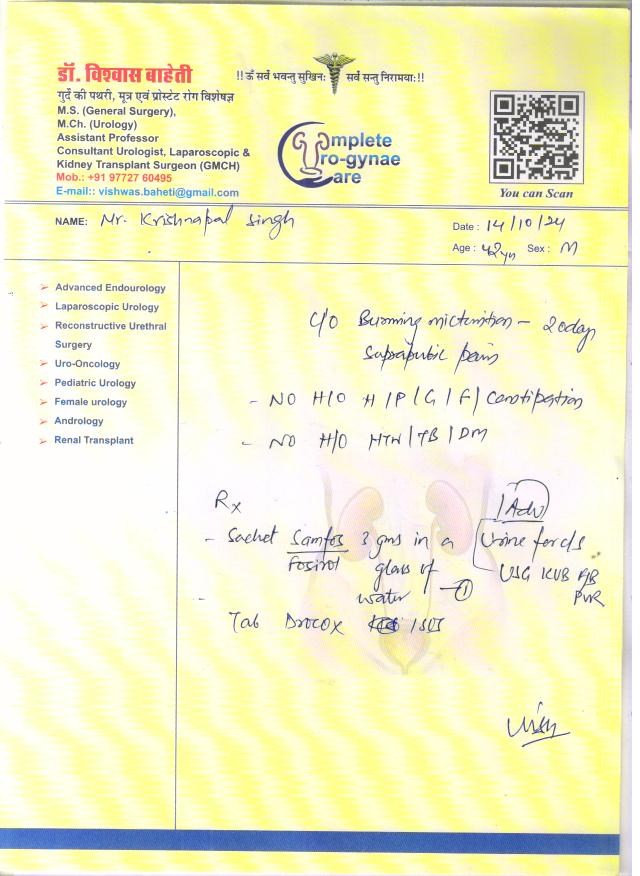 डॉ. विश्वास बाहेती
गुर्दे की पथरी, मूत्र एवं प्रोस्टेट रोग विशेषज्ञ
M.S. (General Surgery),
M.Ch. (Urology)
Assistant Professor
Consultant Urologist, Laparoscopic &
Kidney Transplant Surgeon (GMCH)
Mob.: +91 97727 60495
E-mail:: vishwas.baheti@gmail.com
!! ॐ सर्वे भवन्तु सुखिनः सर्वे सन्तु निरामयाः!!
Complete
Uro-gynae
Care
You can Scan
NAME: Mr. Krishnapal Singh
Date : 14/10/24
Age : 42yrs Sex : M
Advanced Endourology
Laparoscopic Urology
Reconstructive Urethral
Surgery
Uro-Oncology
Pediatric Urology
Female urology
Andrology
Renal Transplant
C/O Burning micturition - 20day
Suprapubic pain
- NO H/O H/P/G/F/Constipation
- NO H/O HTN/TB/DM
Rx
- Sachet Samfos 3 gms in a
Fosirol glass of
water - 1
Tab Drocox
Adv
Urine for c/s
USG KUB
PVR